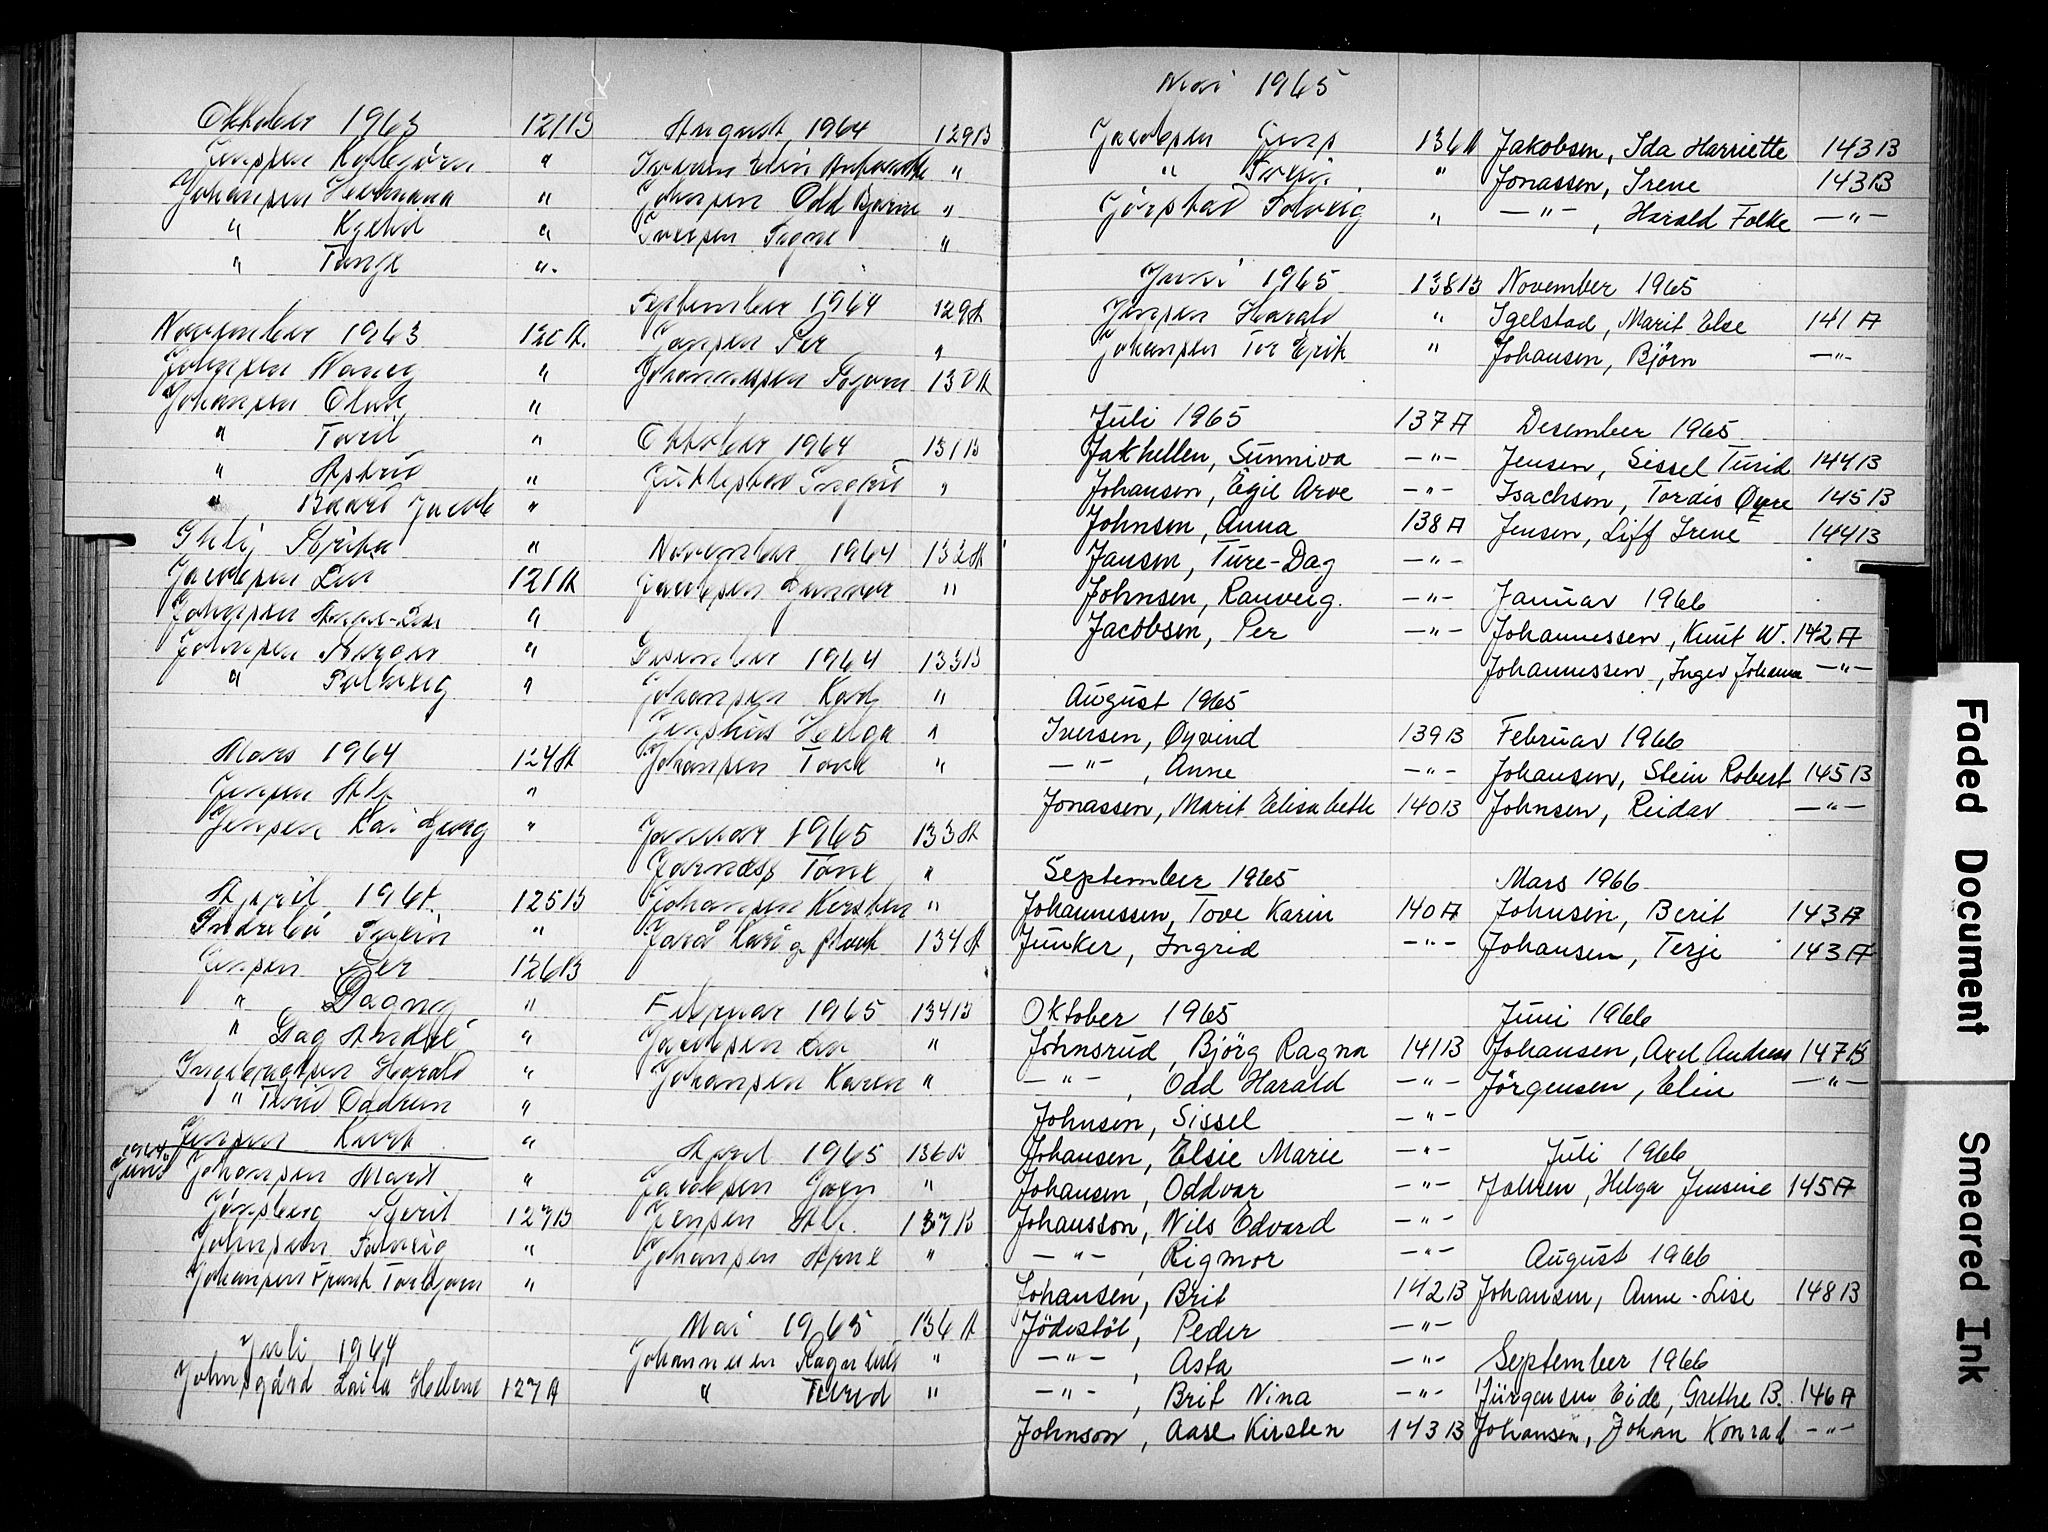 Oktober 1963 121B
Jenssen Kolbjørn "
Johansen Hermana "
" Kjellrid "
" Tonje "
November 1963 120A.
Johnsen Nancy "
Johansen Oluk "
" Toril "
" Astrid "
" Baard Jacob "
Ihlej Sørika "
Jacobsen Lise 121A
Johansen Anne-Lise "
Johnsen Birger "
" Solveig "
Mars 1964 124A
Jensen Alf "
Jensen Kai Georg "
April 1964. 125B
Indrebö Svein "
Jensen Per 126B
" Dagny "
" Dag André "
Ingebregtsen Harald "
" Turid Oddrun "
Jensen Knut "
1964 Juni Johansen Marit "
Jönsberg Berit 127B
Johnsen Solveig "
Johansen Frank Torbjørn "
Juli 1964
Johnsgård Laila Helene 127A
August 1964 129B
Iversen Elin Annette "
Johnsen Odd Bjarne "
Iversen Signe "
September 1964 129A
Jonsen Per "
Johannessen Sigrun 130A
Oktober 1964 131B
Jükkestad Ingrid "
November 1964 132A
Jacobsen Gunnar "
Desember 1964 133B
Johansen Kari "
Jenshus Helga "
Johansen Tove "
Januar 1965 133A
Jarness Tone "
Johansen Kersten "
Jarå Kari g. Munk 134A
Februar 1965 134B
Jacobsen Liv "
Johansen Karen "
April 1965 136B
Jacobsen Goen "
Jensen Alf. 137B
Johansen Arne "
Mai 1965 136A
Johannesen Ragnhild "
" Turid "
Mai 1965
Jacobsen Jens 136A
" Svein "
Gjörstad Solveig "
Juni 1965 138B
Jensen Harald "
Johansen Tor Erik "
Juli 1965 137A
Jakhellen, Sunniva —"—
Johansen, Egil Arve —"—
Johnsen, Anna 138A
Jansen, Ture-Dag —"—
Johnsen, Ranveig. —"—
Jacobsen, Per —"—
August 1965
Iversen, Øyvind 139B
—"— , Anne —"—
Jonassen, Marit Elisabeth 140B
September 1965
Johannessen, Tove Karin 140A
Junker, Ingrid —"—
Oktober 1965
Johnsrud, Björg Ragna 141B
—"— , Odd Harald —"—
Johnsen, Sissel —"—
Johansen, Elsie Marie —"—
Johansen, Oddvar —"—
Johansson, Nils Edvard —"—
—"— , Rigmor —"—
Johansen, Brit 142B
Jödestöl, Peder —"—
—"— , Asta —"—
—"— , Brit Nina —"—
Johnson, Aase Kirsten 143B
Jakobsen, Ida Harriette 143B
Jonassen, Irene 143B
—"— , Harald Folke —"—
November 1965
Igelstad, Marit Else 141A
Johansen, Björn —"—
Desember 1965
Jensen, Sissel Turid 144B
Isachsen, Tordis Øyre 145B
Jensen, Liff Irene 144B
Januar 1966
Johannessen, Knut W. 142A
Johannessen, Inger Johanne —"—
Februar 1966
Johansen, Stein Robert 145B
Johnsen, Reidar —"—
Mars 1966
Johnsen, Berit 143A
Johansen, Terje 143A
Juni 1966
Johansen, Axel Andreas 147B
Jörgensen, Elin —"—
Juli 1966
Jahren, Helga Jensine 145A
August 1966
Johansen, Anne-Lise 148B
September 1966
Jürgensen Eide, Grethe B. 146A
Johansen, Johan Konrad —"—
Faded Document
Smeared Ink